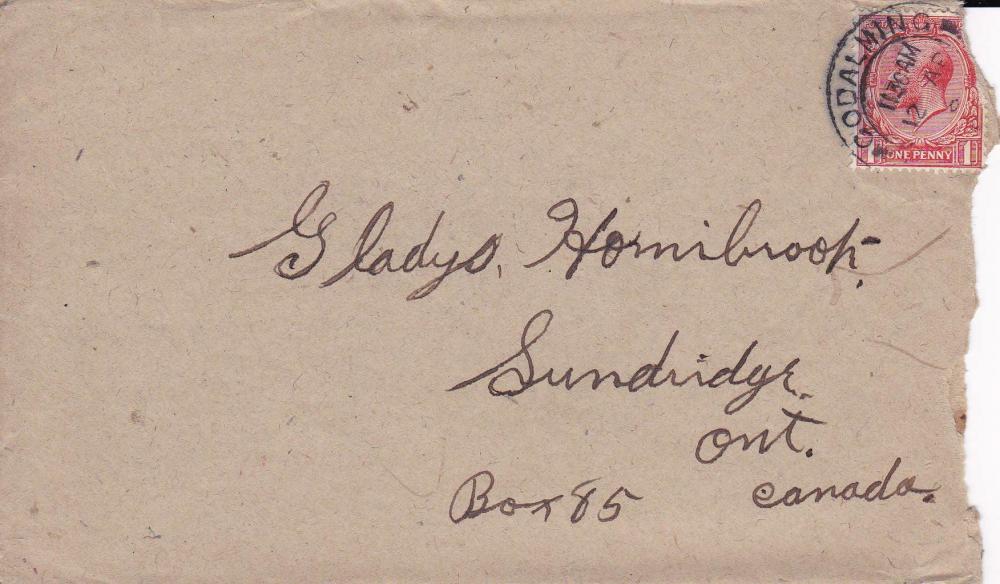 GODALMING
11 30 AM
12 AP
1 ONE PENNY 1
Gladys Hornibrook
Sundridge
Ont.
Box 85 Canada.